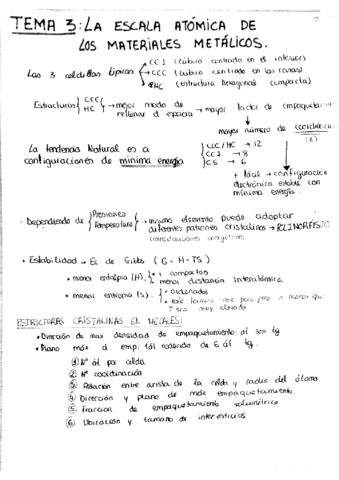 TEMA 3: LA ESCALA ATÓMICA DE
LOS MATERIALES METÁLICOS.
Las 3 celdillas típicas
CCI (cúbico centrado en el interior)
CCC (cúbico centrado en las caras)
HC (estructura hexagonal compacta)
Estructuras CCC HC → mejor modo de rellenar el espacio → mayor factor de empaquetamiento
mayor número de coordinación
(8)
La tendencia Natural es a
configuraciones de mínima energía
CCC/HC → 12
CCI → 8
CS → 6
+ fácil → configuración
electrónica estable con
mínima energía.
• Dependiendo de Presiones Temperatura → mismo elemento puede adoptar
diferentes patrones cristalinos → POLIMORFISMO
(consideraciones energéticas)
• Estabilidad → Ec de Gibbs (G = H - TS)
• menor entalpía (H) + compactos
menor distancia interatómica
• menor entropía (S) • ordenados
• este término pero a menos que
T sea muy elevada
ESTRUCTURAS CRISTALINAS EN METALES:
• Dirección de max densidad de empaquetamiento: át son tg
• Plano más d. emp: 1át rodeado de 6 át tg.
① Nº át por celda
② Nº coordinación
③ Relación entre arista de la celda y radio del átomo
④ Dirección y plano de más empaquetamiento
⑤ Fracción de empaquetamiento volumétrico
⑥ Ubicación y tamaño de intersticios